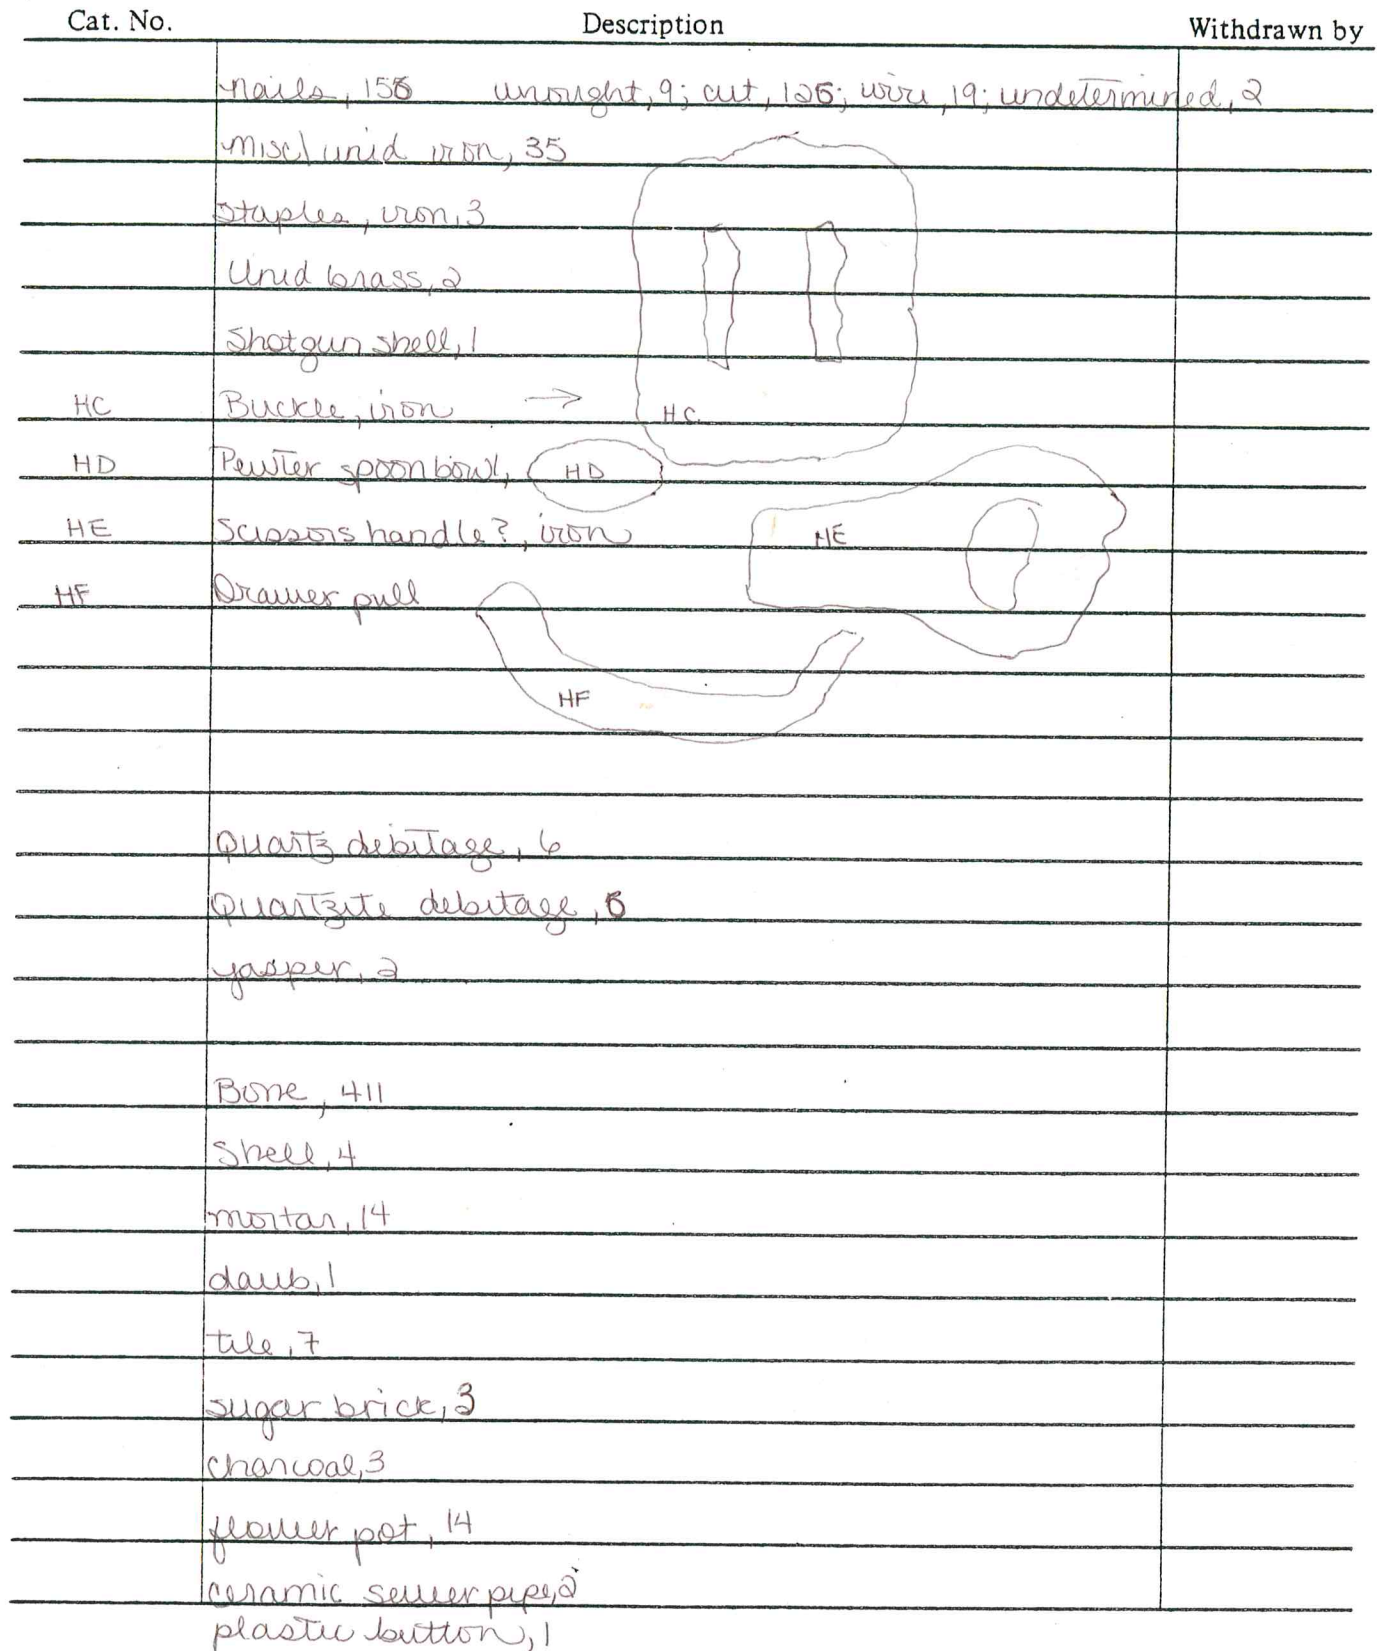 Cat. No. Description Withdrawn by
nails, 156 wrought, 9; cut, 126; wire, 19; undetermined, 2
misc/unid iron, 35
staples, iron, 3
Unid brass, 2
Shotgun shell, 1
HC Buckle, iron → HC
HD Pewter spoon bowl, HD
HE Scissors handle?, iron HE
HF Drawer pull
HF
Quartz debitage, 6
Quartzite debitage,
jasper, 2
Bone, 411
Shell, 4
mortar, 14
daub, 1
tile, 7
sugar brick, 3
charcoal, 3
flower pot, 14
ceramic sewer pipe, 2
plastic button, 1